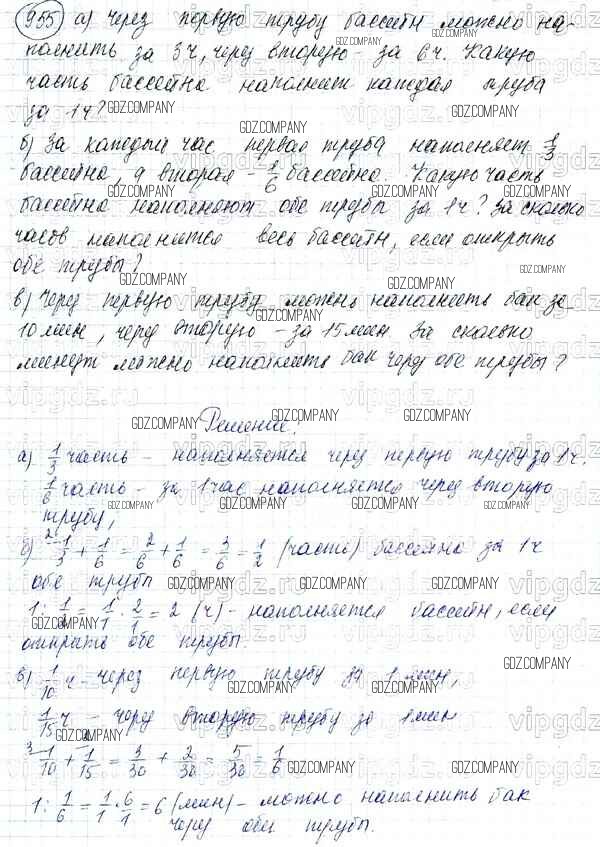 955 а) Через первую трубу бассейн можно на-
полнить за 3ч, через вторую - за 6ч. Какую
часть бассейна наполнит каждая труба
за 1ч?
б) За каждый час первая труба наполняет 1/3
бассейна, а вторая - 1/6 бассейна. Какую часть
бассейна наполняют обе трубы за 1ч? За сколько
часов наполнится весь бассейн, если открыть
обе трубы?
в) Через первую трубу можно наполнить бак за
10 мин, через вторую - за 15 мин. За сколько
минут можно наполнить бак через обе трубы?
Решение:
а) 1/3 часть - наполняется через первую трубу за 1ч.
1/6 часть - за 1 час наполняется через вторую
трубу,
б) 2 1/3 + 1/6 = 2/6 + 1/6 = 3/6 = 1/2 (часть) бассейна за 1ч
обе трубы
1 : 1/2 = 1/1 · 2/1 = 2 (ч) - наполняется бассейн, если
открыть обе трубы.
в) 1/10 ч - через первую трубу за 1 мин,
1/15 ч - через вторую трубу за 1 мин
3 1/10 + 2 1/15 = 3/30 + 2/30 = 5/30 = 1/6
1 : 1/6 = 1/1 · 6/1 = 6 (мин) - можно наполнить бак
через обе трубы.
GDZ.COMPANY
vipgdz.ru